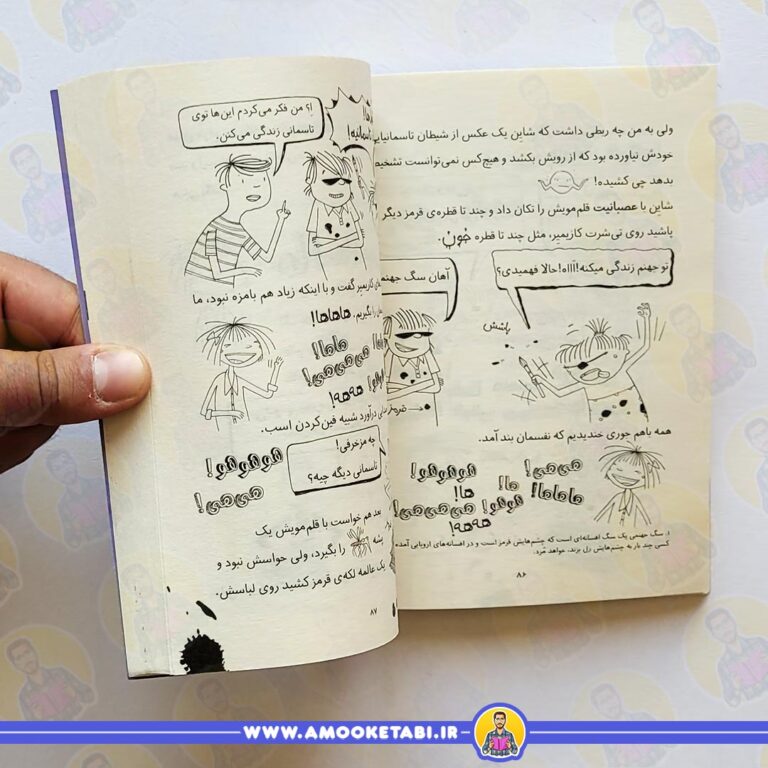 ولی به من چه ربطی داشت که شاین یک عکس از شیطان تاسمانیایی
خودش نیاورده بود که از رویش بکشد و هیچ‌کس نمی‌توانست تشخیص
بدهد چی کشیده!
شاین با عصبانیت قلم‌مویش را تکان داد و چند تا قطره‌ی قرمز دیگر
پاشید روی تی‌شرت کازیمیر، مثل چند تا قطره خون.
تو جهنم زندگی میکنه!آااه!حالا فهمیدی؟
آهان سگ جهنم
پاشش
همه باهم جوری خندیدیم که نفسمان بند آمد.
هی‌هی!
هاهاها!
ها!
هوهوهو!
ها!
هوهو!
هی‌هی‌هی!
هه‌هه!
۱. سگ جهنمی یک سگ افسانه‌ای است که چشم‌هایش قرمز است و در افسانه‌های اروپایی آمده
کسی چند بار به چشم‌هایش زل بزند، خواهد مُرد.
۸۶
اِ؟ من فکر می‌کردم این‌ها توی
تاسمانی زندگی می‌کنن.
تاسمانیه!
کازیمیر گفت و با اینکه زیاد هم بامزه نبود، ما
را بگیریم.
هاهاها!
هاها!
هی‌هی‌هی!
هه‌هه!
درآورد شبیه فین‌کردن اسب.
چه مزخرفی!
تاسمانی دیگه چیه؟
هوهوهو!
هی‌هی!
بعد هم خواست با قلم‌مویش یک
پشه را بگیرد، ولی حواسش نبود و
یک عالمه لکه‌ی قرمز کشید روی لباسش.
۸۷
WWW.AMOOKETABI.IR